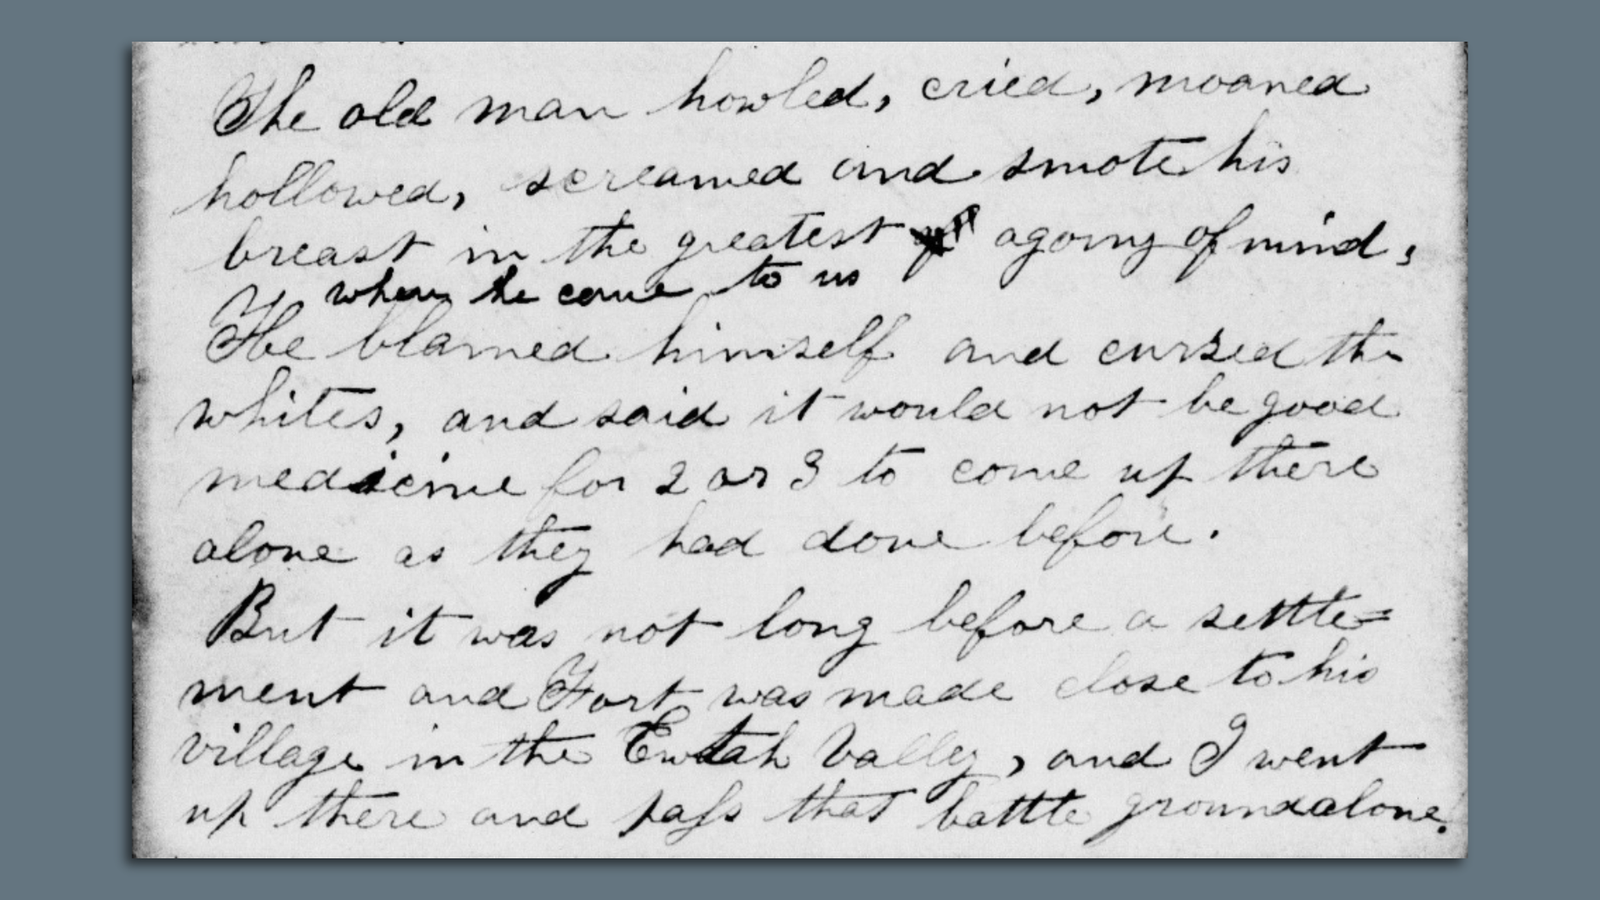 The old man howled, cried, moaned
hollowed, screamed and smote his
breast in the greatest agony of mind,
when he come to us
He blamed himself and cursed the
whites, and said it would not be good
medicine for 2 or 3 to come up there
alone as they had done before.
But it was not long before a settle=
ment and Fort was made close to his
village in the Ewtah Valley, and I went
up there and pass that battle ground alone.